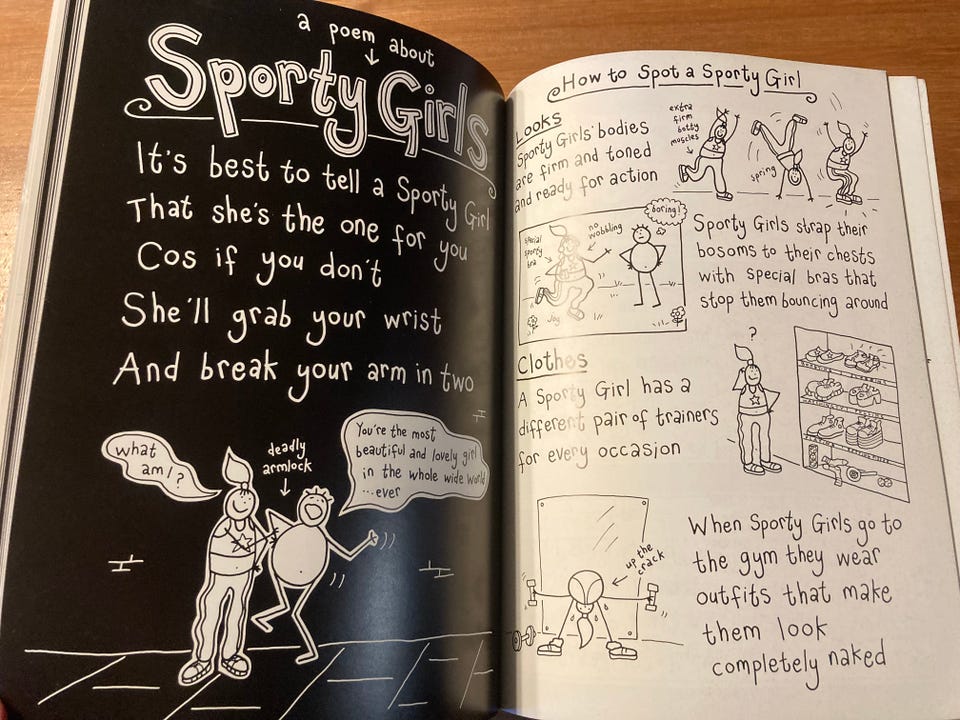 a poem about
Sporty Girls
It's best to tell a Sporty Girl
That she's the one for you
Cos if you don't
She'll grab your wrist
And break your arm in two
what
am I?
deadly
armlock
You're the most
beautiful and lovely girl
in the whole wide world
...ever
How to Spot a Sporty Girl
Looks
Sporty Girls' bodies
are firm and toned
and ready for action
extra
firm
botty
muscles
spring
special
sporty
bra
no
wobbling
boring!
Jog
Sporty Girls strap their
bosoms to their chests
with special bras that
stop them bouncing around
Clothes
A Sporty Girl has a
different pair of trainers
for every occasion
?
up the
crack
When Sporty Girls go to
the gym they wear
outfits that make
them look
completely naked